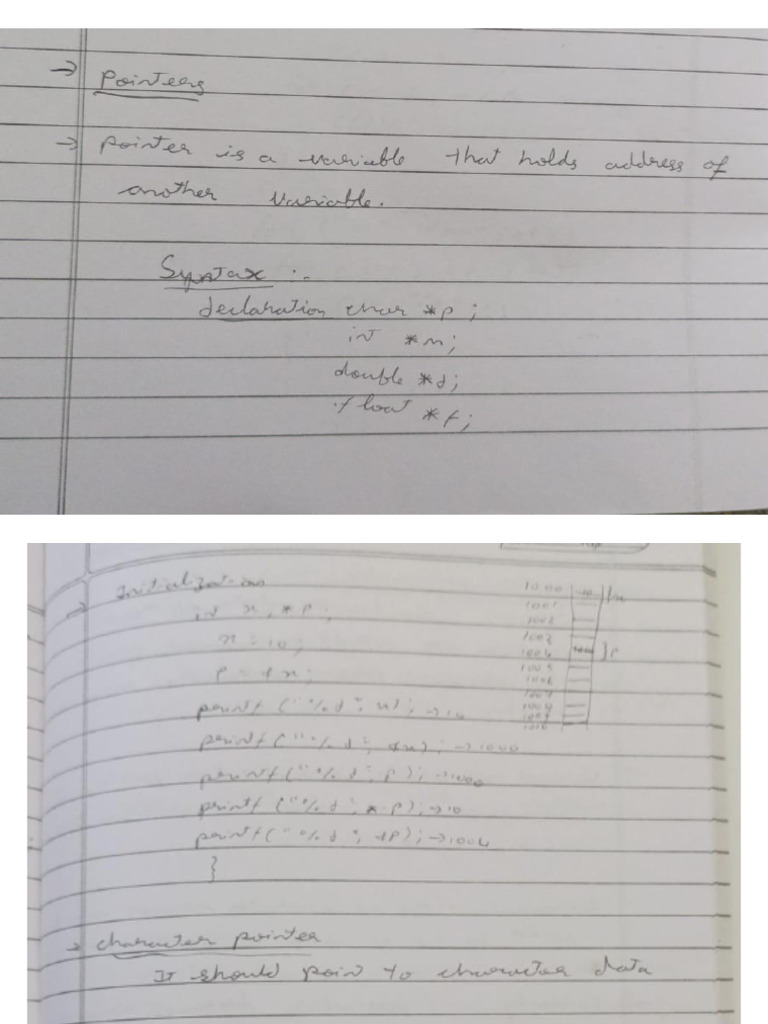 → Pointers
→ Pointer is a variable that holds address of
another variable.
Syntax :-
declaration char *p ;
int *n;
double *d;
float *f;
→ Initialization
int n, *p;
n = 10;
p = &n;
printf ("%d", n); → 10
printf ("%d", &n); → 1000
printf ("%d", p); → 1000
printf ("%d", *p); → 10
printf ("%d", &p); → 1004
}
1000 10 }n
1001
1002
1003
1004 }p
1005
1006
1007
1008
1009
1010
→ character pointer
It should point to character data